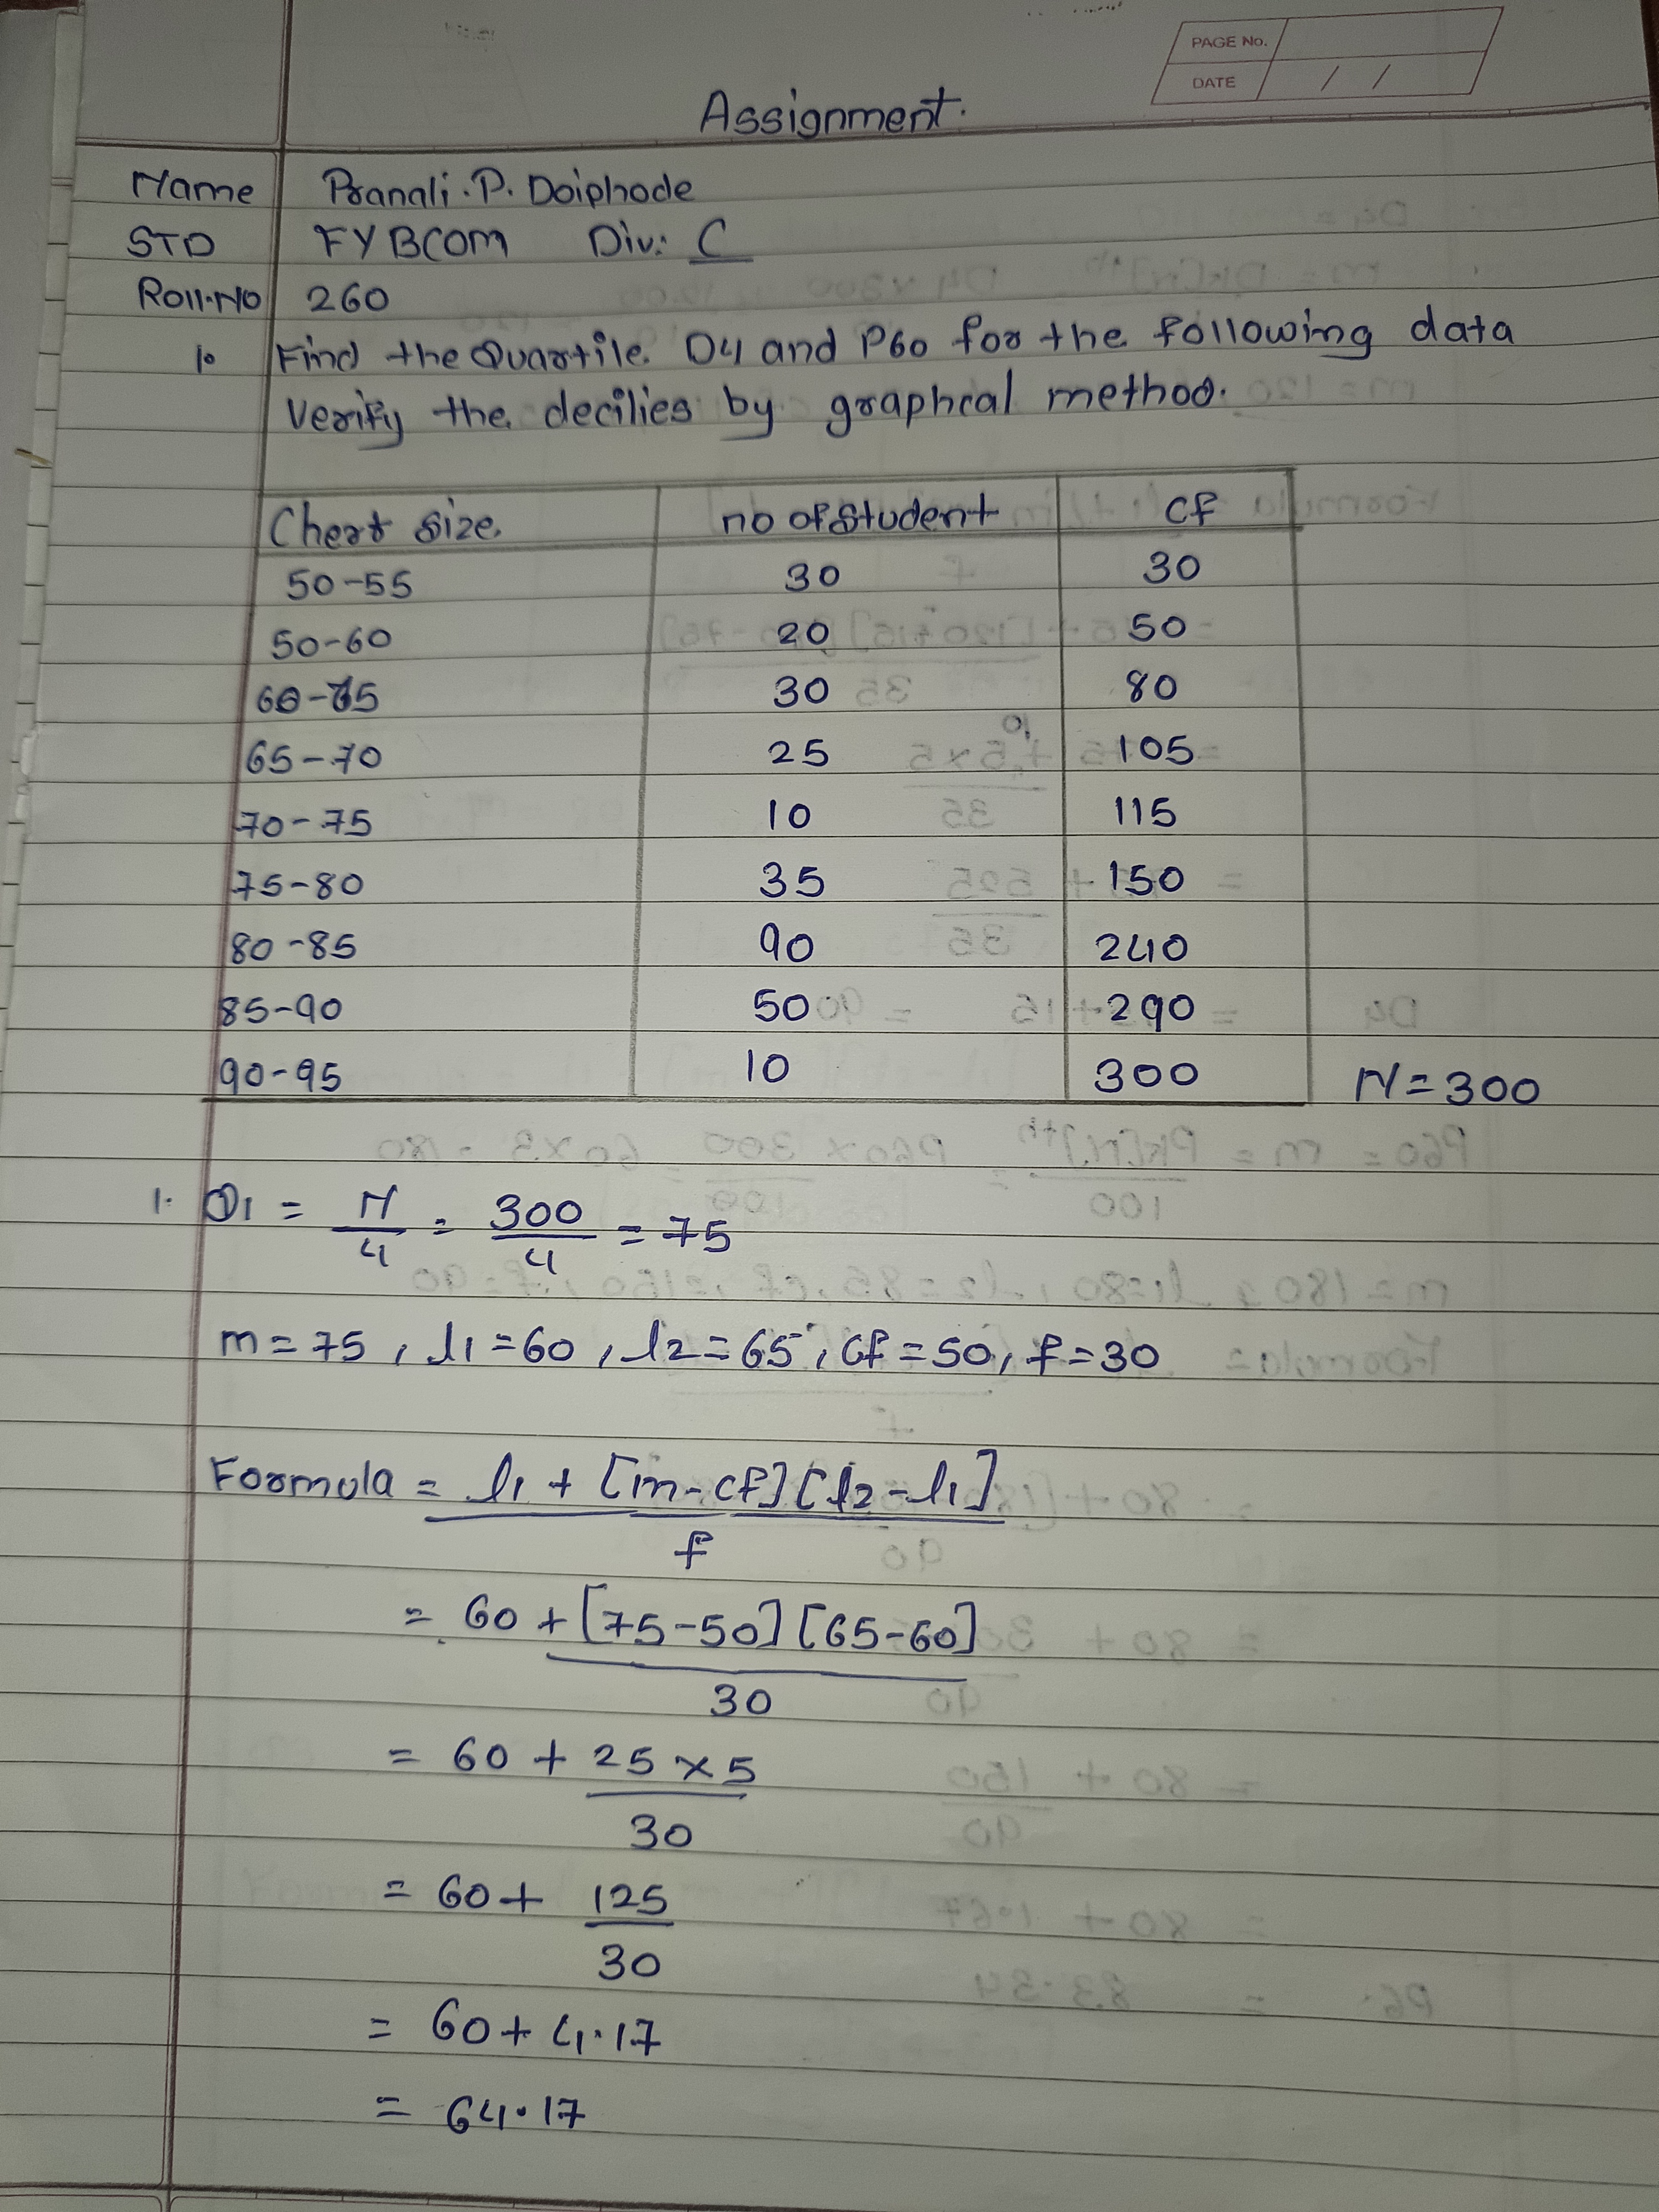 PAGE No.
DATE / /
Assignment.
Name Pranali.P. Doiphode
STD FYBCOM Div: C
Roll.No 260
1. Find the Quartile. D4 and P60 for the following data
verify the decilies by graphcal method.
Chest size. no of student cf
50-55 30 30
50-60 20 50
60-65 30 80
65-70 25 105
70-75 10 115
75-80 35 150
80-85 90 240
85-90 50 290
90-95 10 300 N=300
1. Q1 = N/4 = 300/4 = 75
m=75, l1=60, l2=65, cf=50, f=30
Formula = l1 + [m-cf][l2-l1]
f
= 60 + [75-50][65-60]
30
= 60 + 25 × 5
30
= 60 + 125
30
= 60 + 4.17
= 64.17